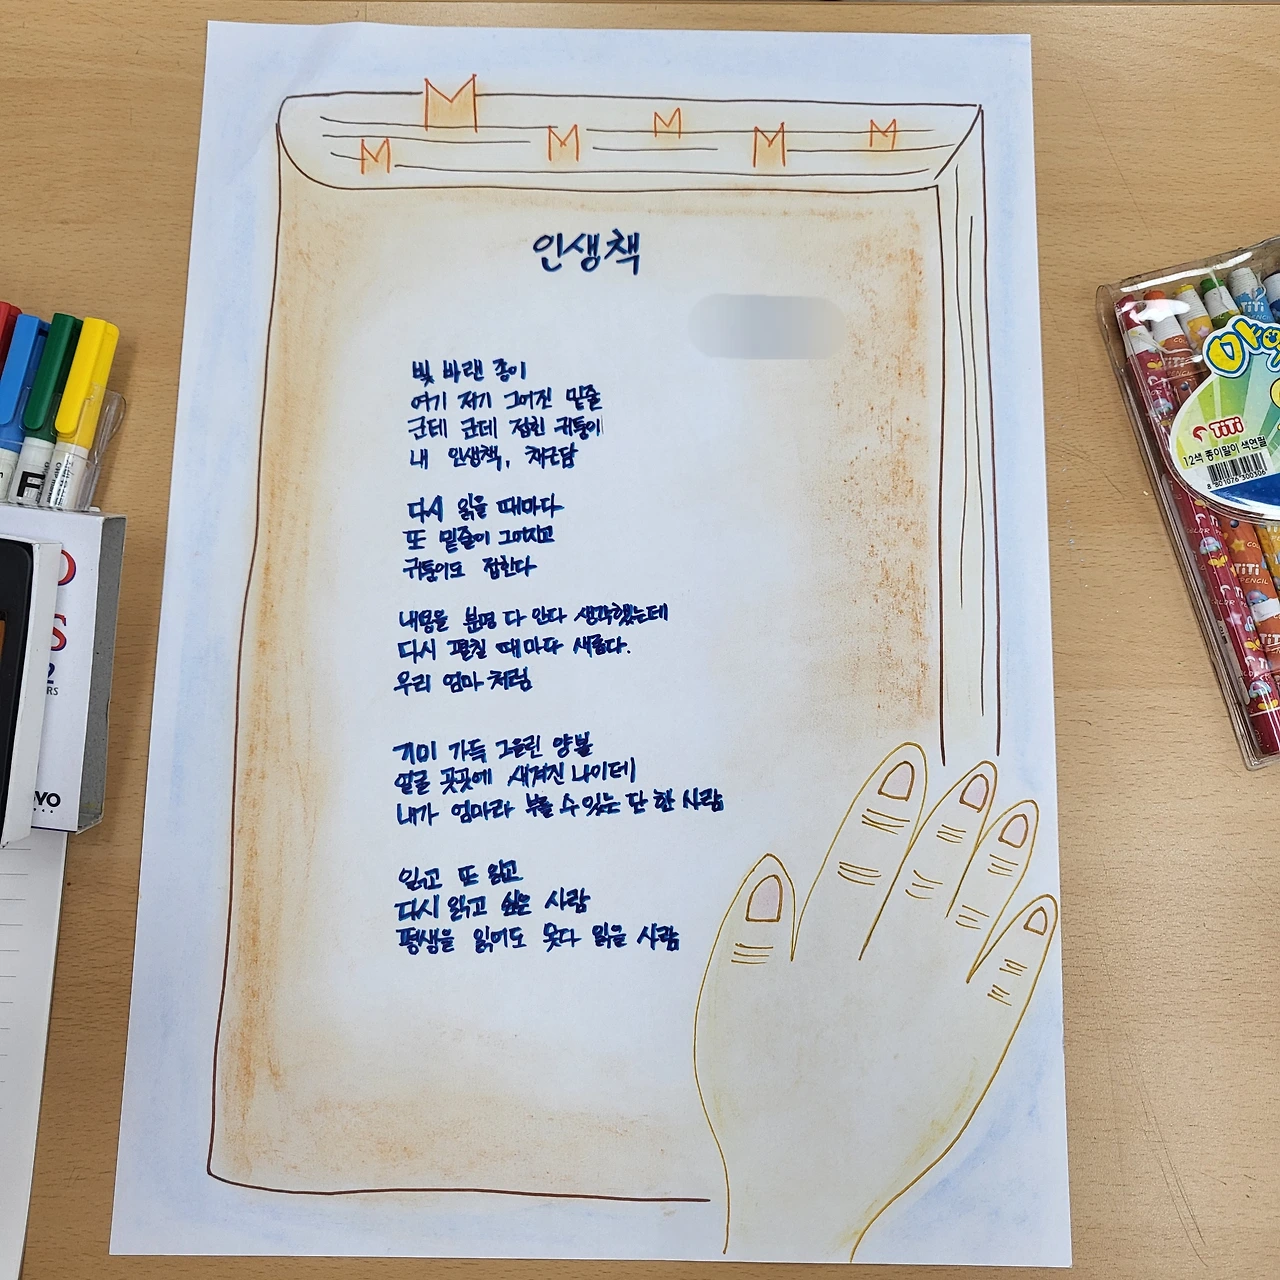 인생책
빛 바랜 종이
여기 저기 그어진 밑줄
군데 군데 접힌 귀퉁이
내 인생책, 채근담
다시 읽을 때마다
또 밑줄이 그어지고
귀퉁이도 접힌다
내용을 분명 다 안다 생각했는데
다시 펼칠 때마다 새롭다.
우리 엄마처럼
기미 가득 그을린 양볼
얼굴 곳곳에 새겨진 나이테
내가 엄마라 부를 수 있는 단 한 사람
읽고 또 읽고
다시 읽고 싶은 사람
평생을 읽어도 못다 읽을 사람
TiTi
12색 종이말이 색연필
8 801076 300306